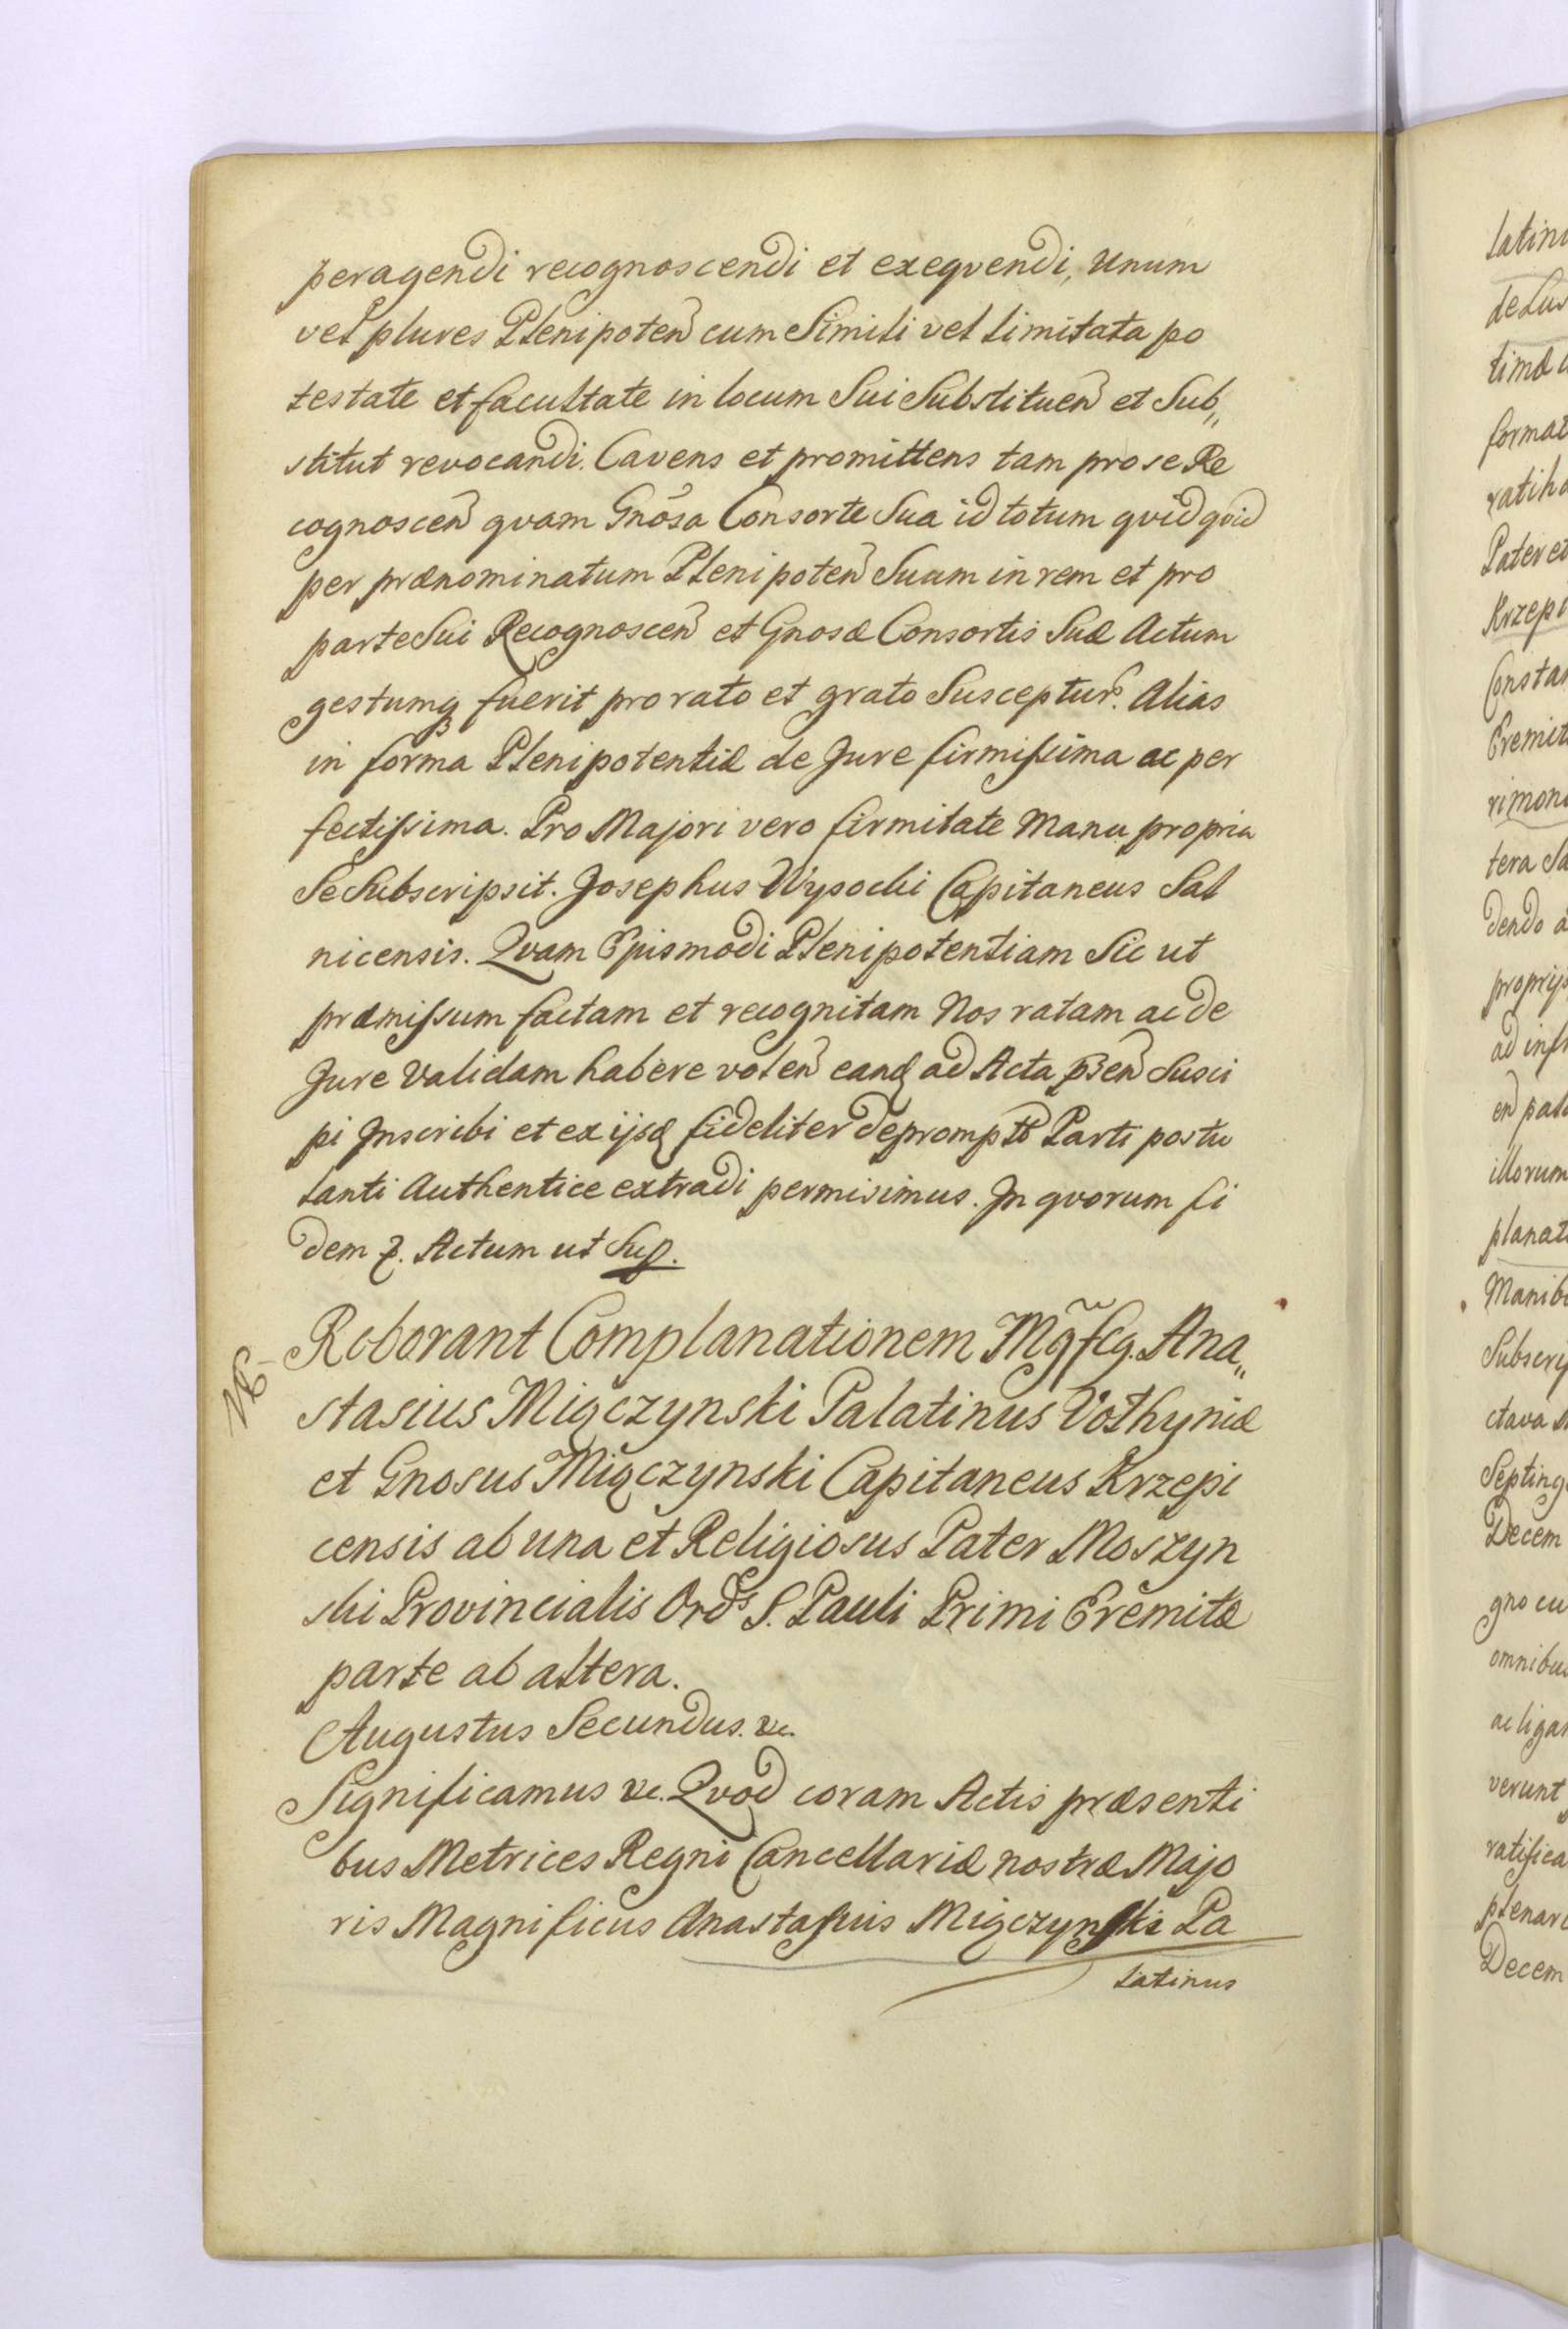 peragendi recognoscendi et exeqvendi, Unum
vel plures Plenipoten cum Simili vel limitata po
testate et facultate in locum Sui Substituen et Sub„
stitut revocandi. Cavens et promittens tam pro se Re
cognoscen qvam Gnosa Consorte Sua id totum qvidqvid
per prænominatum Plenipoten Suum in rem et pro
parte Sui Recognoscen et Gnosæ Consortis Suæ Actum
gestumq fuerit pro rato et grato Suscepturs. Alias
in forma Plenipotentiæ de Jure firmissima ac per
fectissima. Pro Majori vero firmitate Manu propria
Se Subscripsit. Josephus Wysocki Capitaneus Sal
nicensis. Qvam Ejusmodi Plenipotentiam Sic ut
præmissum factam et recognitam Nos ratam ac de
Jure Validam habere volen eand ad Acta pñsen Susci
pi Inscribi et ex ijsd fideliter depromptt Parti postu
lanti Authentice extradi permisimus. In qvorum fi
dem &. Actum ut Sup.
Roborant Complanationem Mgfcg. Ana„
stasius Miączynski Palatinus Volhyniæ
et Gnosus Miączynski Capitaneus Krzepi
censis ab una et Religiosus Pater Moszyn
ski Provincialis Ords S. Pauli Primi Eremitæ
parte ab altera.
Augustus Secundus. &c.
Significamus &c. Qvod coram Actis præsenti
bus Metrices Regni Cancellariæ nostræ Majo
ris Magnificus Anastasius Miączynski Pa
latinus
latin
de Lus
timæ
format
ratiha
Pater et
Krzepi
Constan
Eremit
rimoni
tera Sa
dendo a
proprijs
ad infr
en pala
illorum
planat
Manibu
Subscry
ctava
Septing
Decem
gno cu
omnibus
ac liga
verunt
ratifica
plenar
Decem